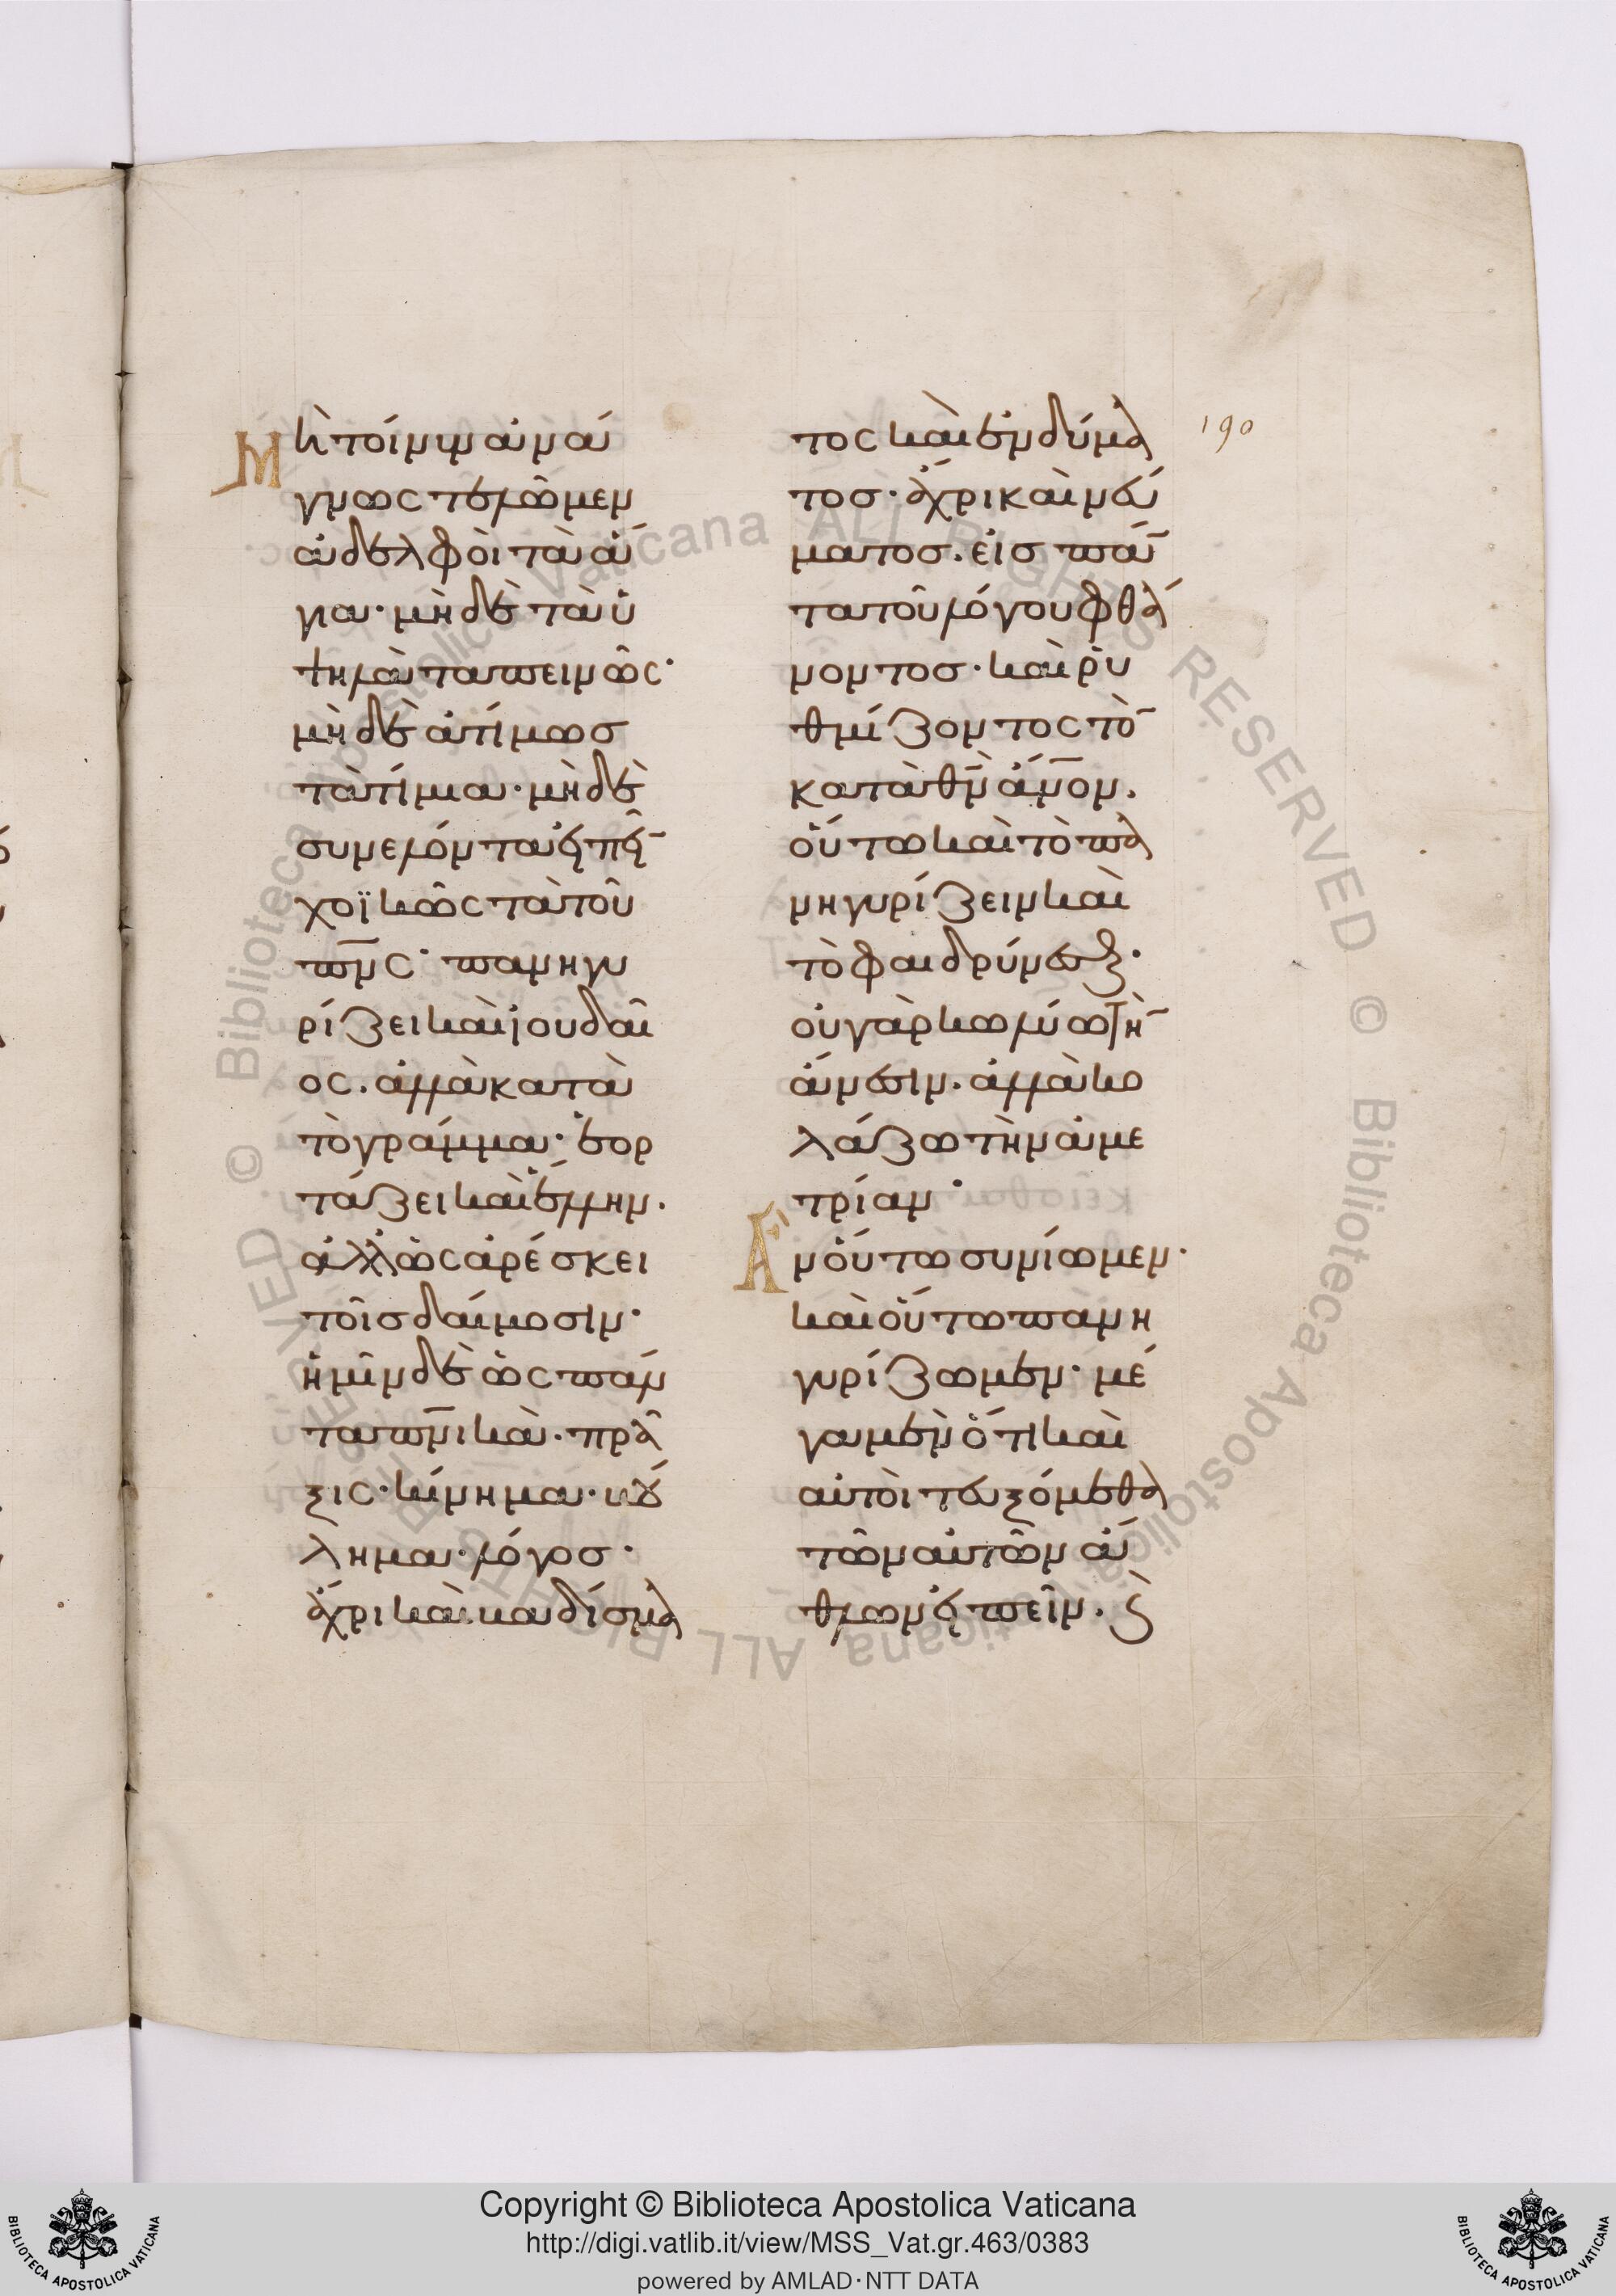 Μὴ τοίνυν ἀνά
γνως τελῶμεν
ἀδελφοὶ τὰ ἅ
για· μὴ δὲ τὰ ὑ
ψηλὰ ταπεινῶς·
μὴ δὲ ἀτίμως
τὰ τίμια· μὴ δὲ
συνελόντα εἰπεῖ̄
χοϊκῶς τὰ τοῦ
π̅ν̅ς· πανηγυ
ρίζει καὶ ἰουδαῖ
ος. ἀλλὰ κατὰ
τὸ γράμμα· ἑορ
τάζει καὶ ἕλλην.
ἀλλ' ὡς ἀρέσκει
τοῖς δαίμοσιν·
ἡμῖν δὲ ὡς πάν
τα π̅ν̅ικὰ. πρᾶ
ξις· κίνημα· βού
λημα· λόγος·
ἄχρι καὶ βαδίσμα
τος καὶ ἐνδύμα
τος· ἄχρι καὶ νεύ
ματος. εἰς πά̄
τα τοῦ λόγου φθά
νοντος· καὶ ῥυ
θμίζοντος τὸ̄
κατὰ θ̅ν̅ ἄ̅ν̅ον.
οὕτω καὶ τὸ πα
νηγυρίζειν καὶ
τὸ φαιδρύνεσθ
οὐ γὰρ κωλύω τὴ̄
ἄνεσιν. ἀλλὰ κο
λάζω τὴν ἀμε
τρίαν·
Ἂν οὕτω συνίωμεν·
καὶ οὕτω πανη
γυρίζωμεν· μέ
γα μὲν ὅτι καὶ
αὐτοὶ τευξόμεθα
τῶν αὐτῶν ἄ
θλων εἰπεῖν. ϛ
190
Copyright © Biblioteca Apostolica Vaticana
http://digi.vatlib.it/view/MSS_Vat.gr.463/0383
powered by AMLAD·NTT DATA
BIBLIOTECA APOSTOLICA VATICANA
BIBLIOTECA APOSTOLICA VATICANA
© Biblioteca Apostolica Vaticana ALL RIGHTS RESERVED © Biblioteca Apostolica Vaticana ALL RIGHTS RESERVED